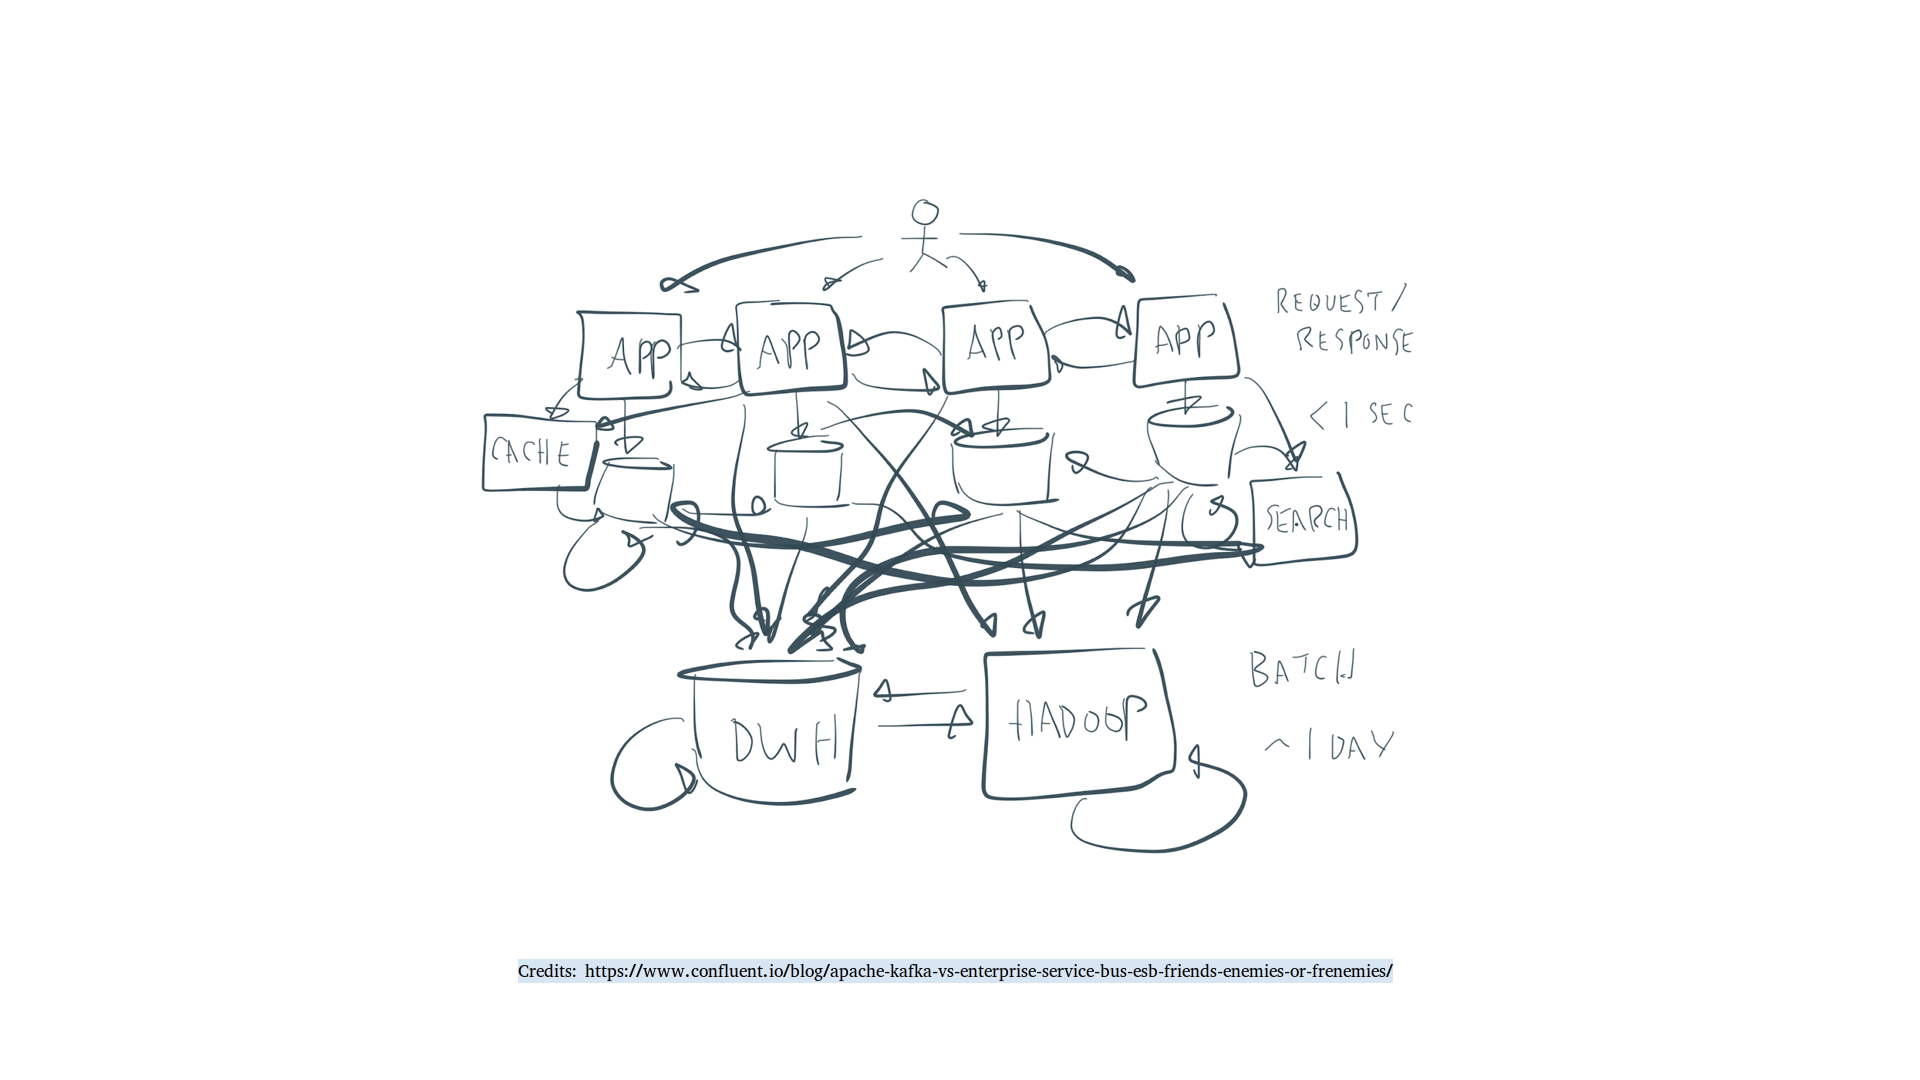 APP
APP
APP
APP
REQUEST/
RESPONSE
< 1 SEC
CACHE
SEARCH
BATCH
DWH
HADOOP
~ 1 DAY
Credits: https://www.confluent.io/blog/apache-kafka-vs-enterprise-service-bus-esb-friends-enemies-or-frenemies/